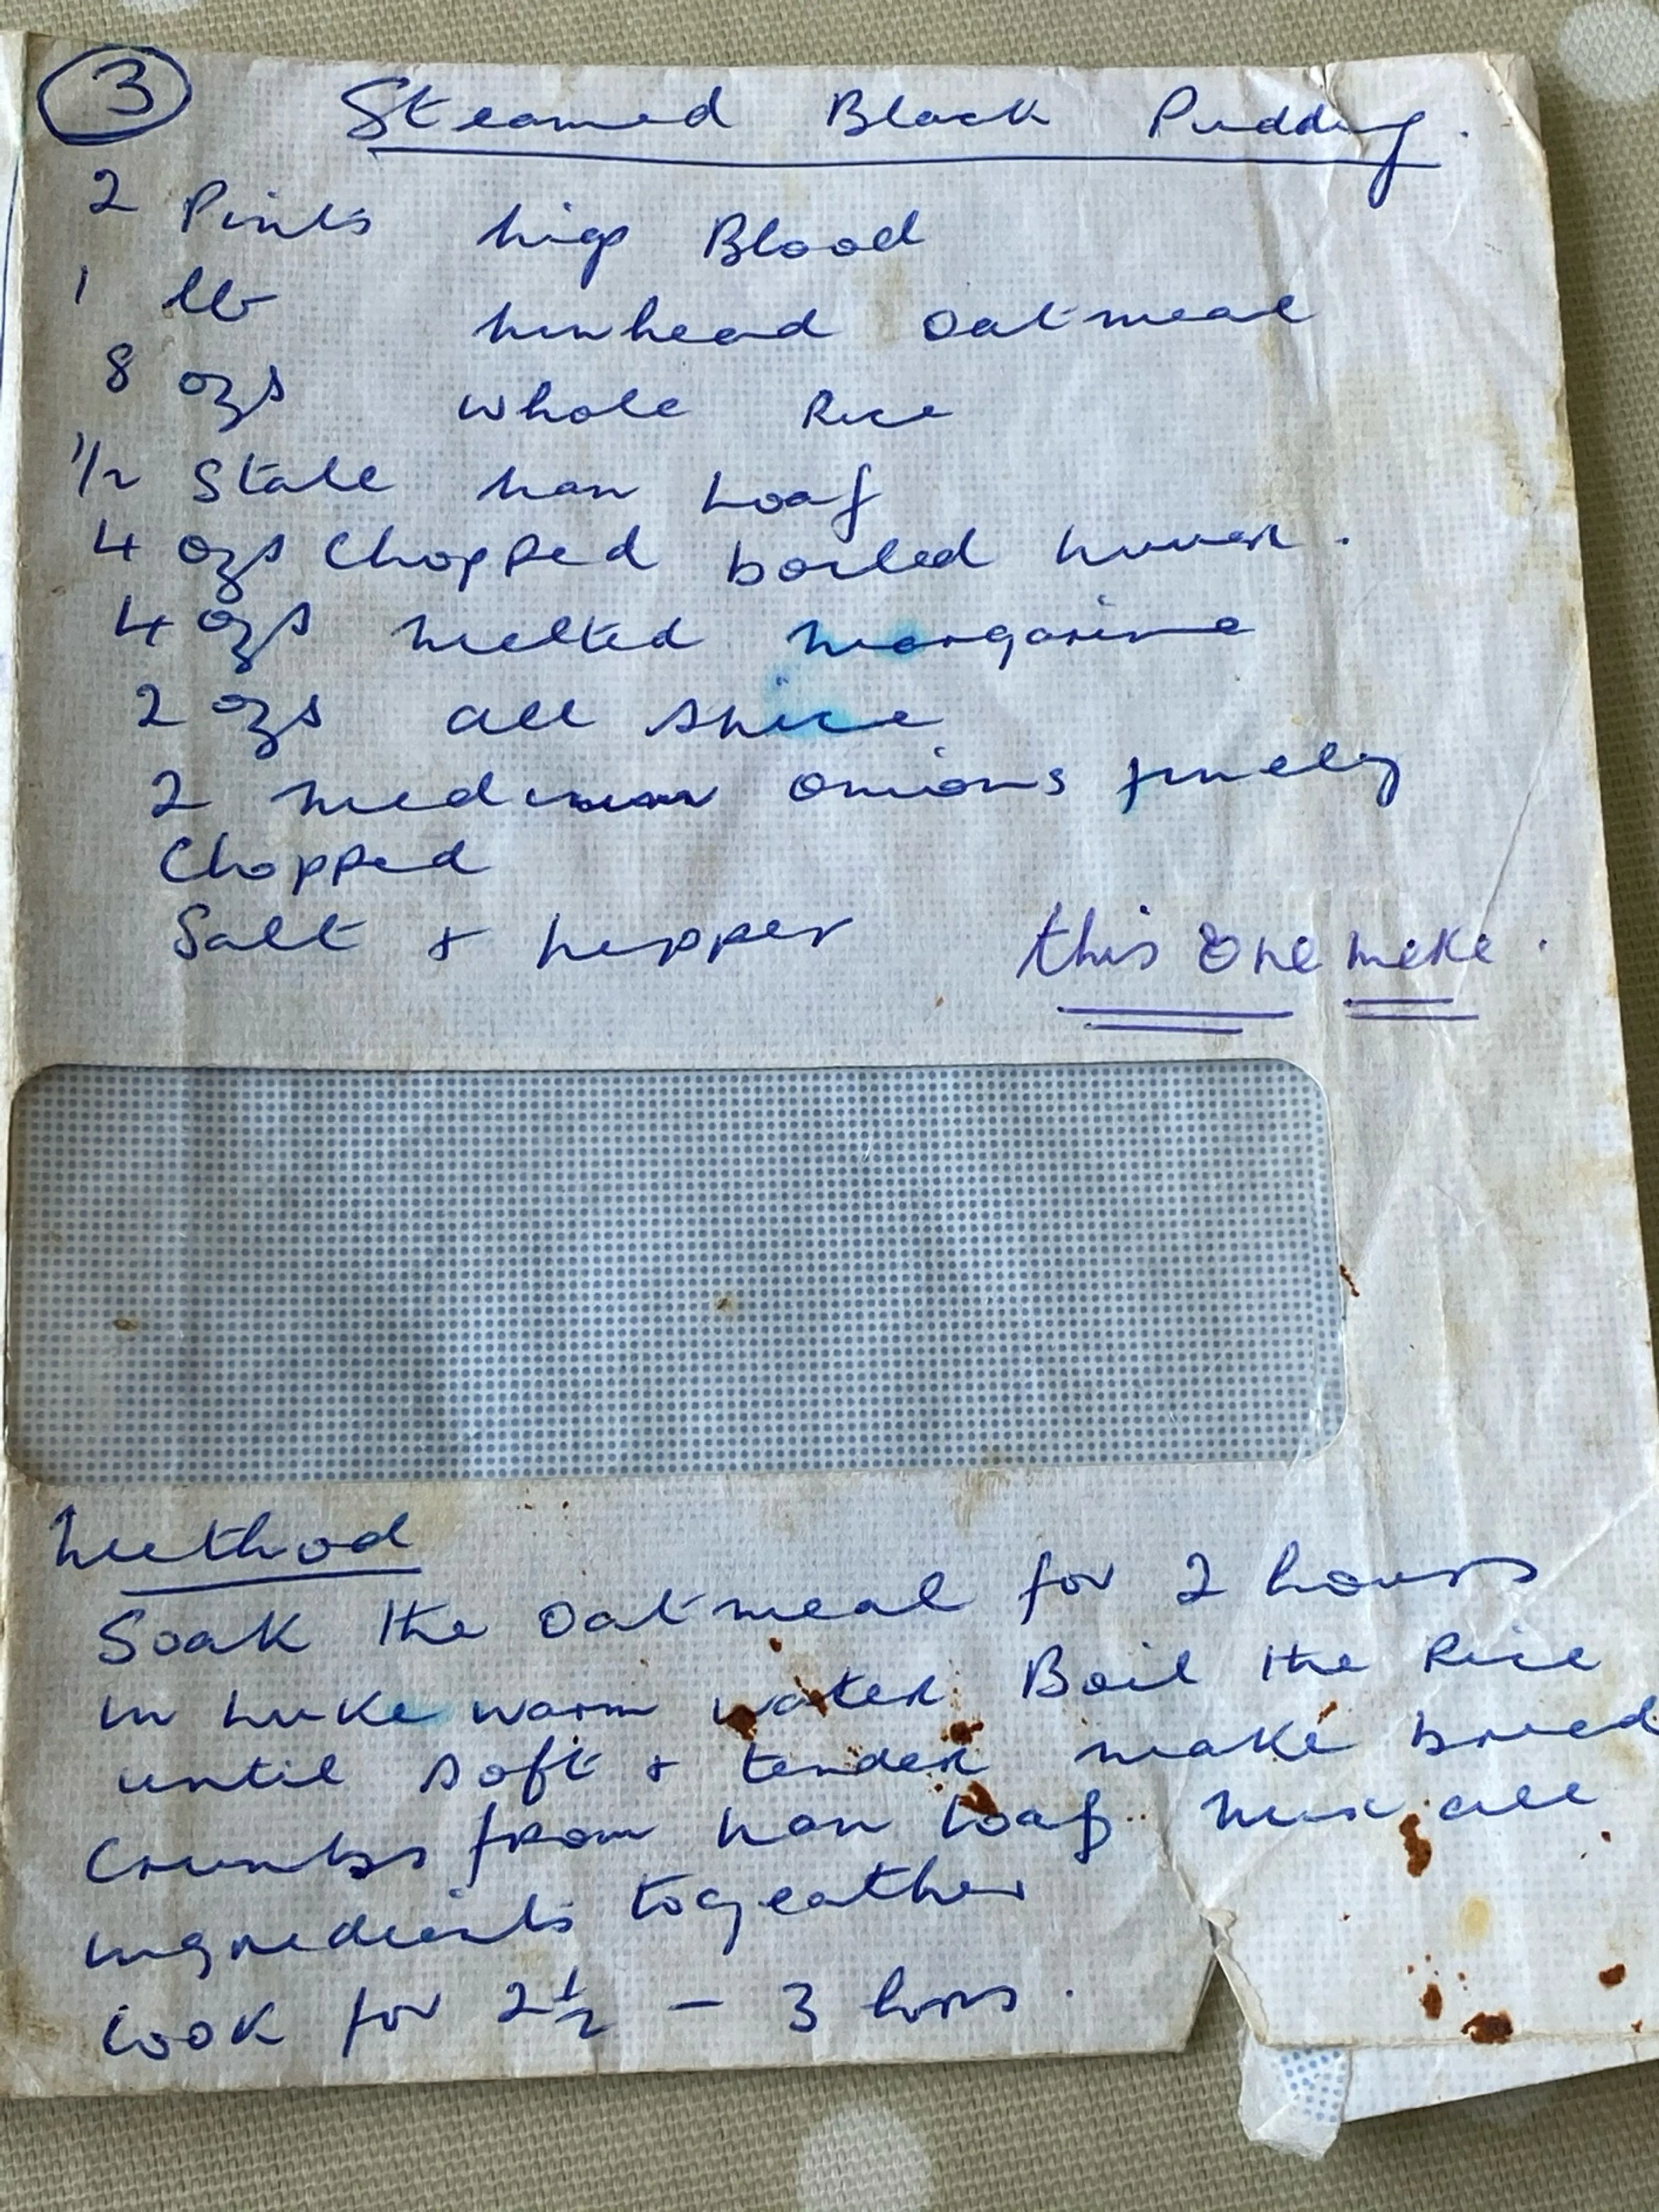 3 Steamed Black Pudding.
2 Pints Pigs Blood
1 lb Pinhead Oatmeal
8 ozs whole Rice
1/2 Stale Pan Loaf
4 ozs Chopped boiled Liver.
4 ozs Melted Margarine
2 ozs all spice
2 Medium Onions finely
Chopped
Salt & Pepper
this one meke.
Method
Soak the Oatmeal for 2 hours
in Luke warm water. Boil the Rice
until soft & tender make bread
Crumbs from Pan Loaf. Mix all
ingredients togeather
Cook for 2 1/2 - 3 hors.